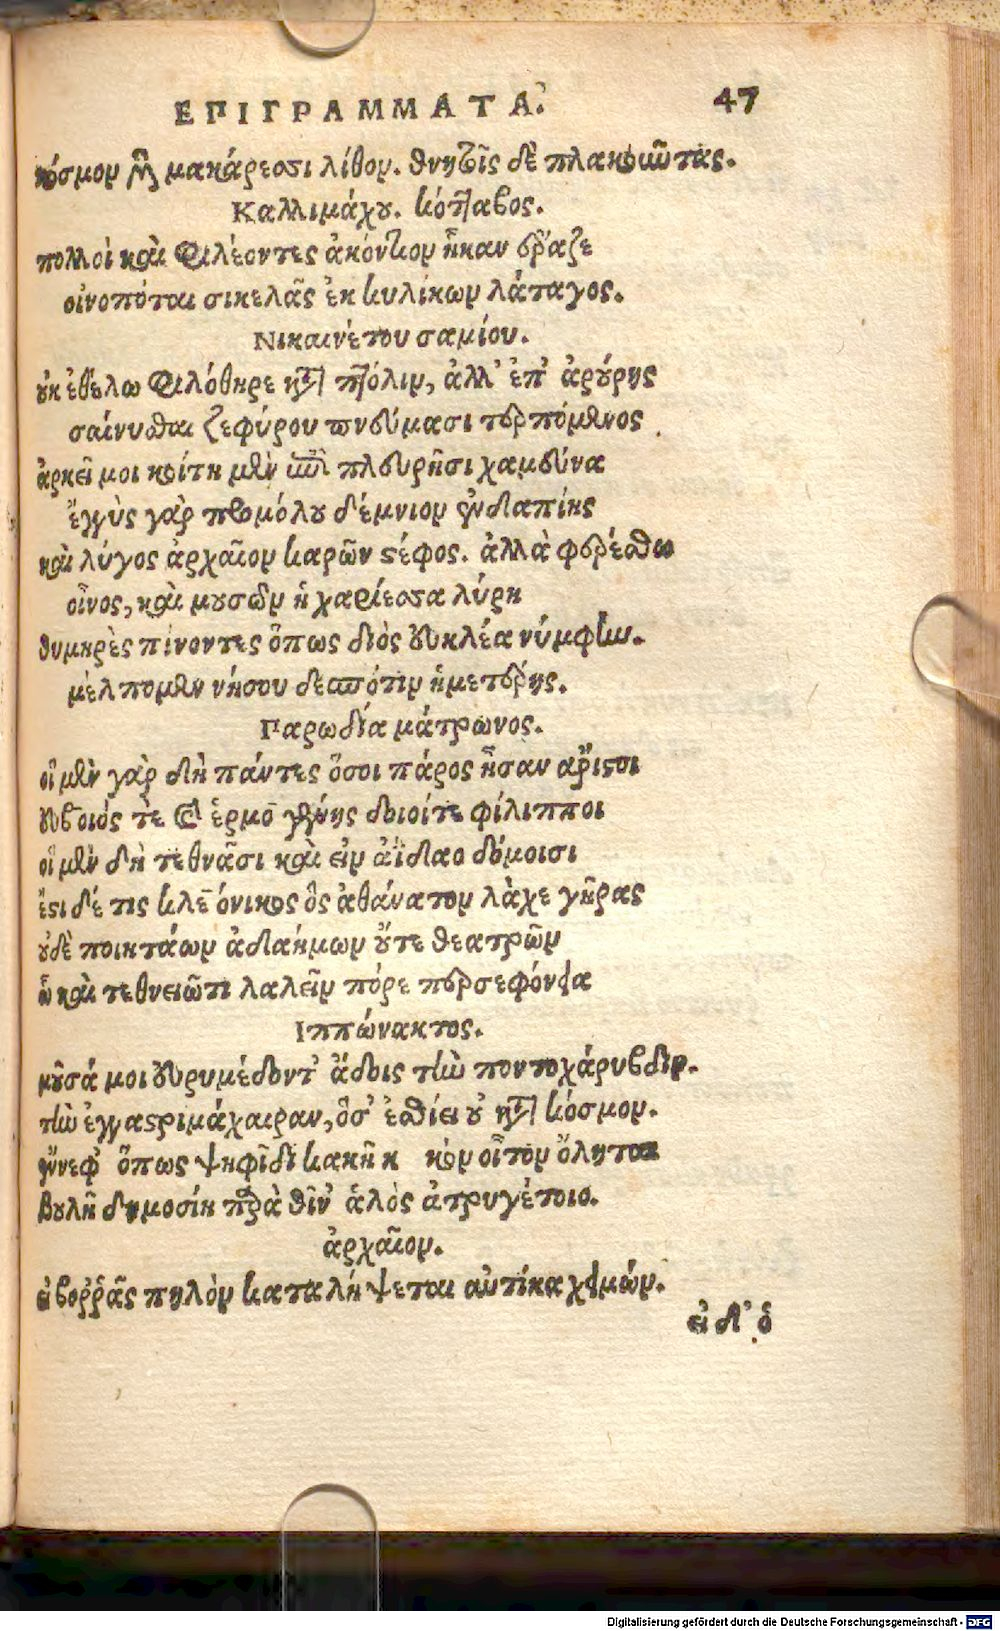 ΕΠΙΓΡΑΜΜΑΤΑ. 47
κόσμον μὲν μακάρεσσι λίθον. θνητοῖς δὲ πλακοῦντας.
Καλλιμάχου. κότταβος.
πολλοὶ καὶ φιλέοντες ἀκόντιον ἧκαν ἔραζε
οἰνοπόται σικελᾶς ἐκ κυλίκων λάταγος.
Νικαινέτου σαμίου.
οὐκ ἐθέλω φιλόθηρε κατὰ πτόλιν, ἀλλ' ἐπ' ἀρούρης
δαίνυσθαι ζεφύρου πνεύμασι τερπόμενος
ἀρκεῖ μοι κοίτη μὲν ὑπὸ πλευρῇσι χαμεύνα
ἐγγὺς γὰρ προμόλου δέμνιον ἐνδαπίης
καὶ λύγος ἀρχαῖον καρῶν στέφος. ἀλλὰ φερέσθω
οἶνος, καὶ μουσῶν ἡ χαρίεσσα λύρη
θυμηρὲς πίνοντες ὅπως διὸς εὐκλέα νύμφην.
μέλπομεν νήσου δεσπότιν ἡμετέρης.
Παρωδία μάτρωνος.
οἱ μὲν γὰρ δὴ πάντες ὅσοι πάρος ἦσαν ἄριστοι
εὔβοιός τε καὶ ἑρμογένης δῖοίτε φίλιπποι
οἱ μὲν δὴ τεθνᾶσι καὶ εἰν ἀΐδαο δόμοισι
ἔστι δέ τις κλεόνικος ὃς ἀθάνατον λάχε γῆρας
οὐδὲ ποιητάων ἀδαήμων οὔτε θεατρῶν
ᾧ καὶ τεθνειῶτι λαλεῖν πόρε περσεφόνεια
Ιππώνακτος.
μοῦσά μοι εὐρυμέδοντ' ἄδοις τὴν ποντοχάρυβδιν.
τὴν ἐγγαστριμάχαιραν, ὃς' ἐσθίει οὐ κατὰ κόσμον.
ἔννεφ' ὅπως ψηφῖδι κακῇ κ κὸν οἶτον ὄληται
βουλῇ δημοσίῃ παρὰ θῖν' ἁλὸς ἀτρυγέτοιο.
ἀρχαῖον.
εἰ βορρᾶς πηλὸν καταλήψεται αὐτίκα χειμών.
εἰ δ' ὁ
Digitalisierung gefördert durch die Deutsche Forschungsgemeinschaft - DFG